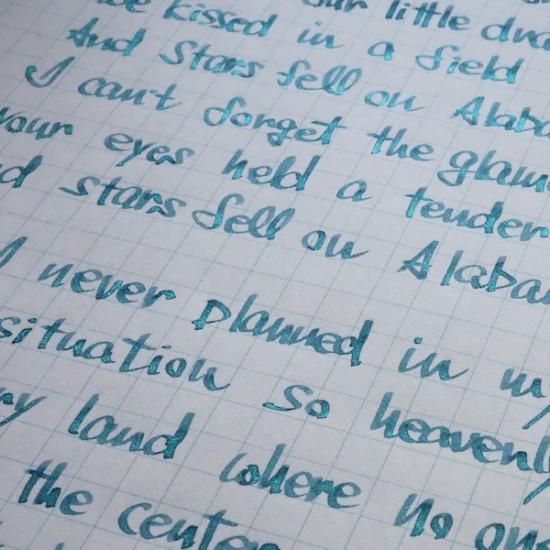 kissed in a field
And stars fell on Alaba
I can't forget the glam
your eyes held a tender
stars fell on Alaba
I never planned in my
situation so heavenly
land where no one
the center